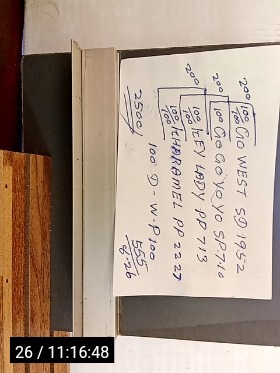 200
100/100 GO WEST SD 1952
200
100 GO GO YO YO SP 710
200
100/100 KEY LADY PP 713
100/100 KHARAMEL PP 2227
2500/ 100 D-W-P 100
565
4.26
26 / 11:16:48